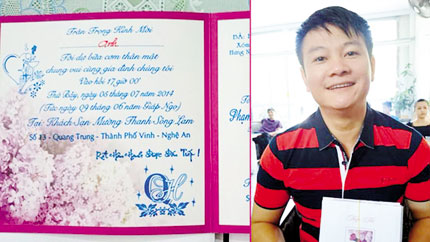 Trân Trọng Kính Mời
Anh
Tới dự bữa cơm thân mật
chung vui cùng gia đình chúng tôi
Vào hồi 17 giờ 00'
Thứ Bảy, ngày 05 tháng 07 năm 2014
(Tức ngày 09 tháng 06 năm Giáp Ngọ)
Tại: Khách Sạn Mường Thanh Sông Lam
Số 13 - Quang Trung - Thành Phố Vinh - Nghệ An
Rất Hân Hạnh Được Đón Tiếp !
QH
Xóm
Hưng N
T
Phạm